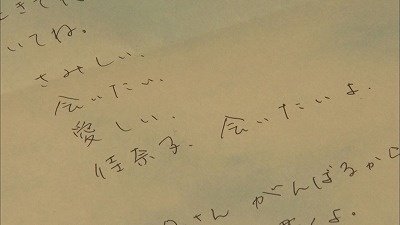 いてね。
さみしい、
会いたい、
愛しい、
佳奈子、会いたいよ、
さんがんばるから
よ。